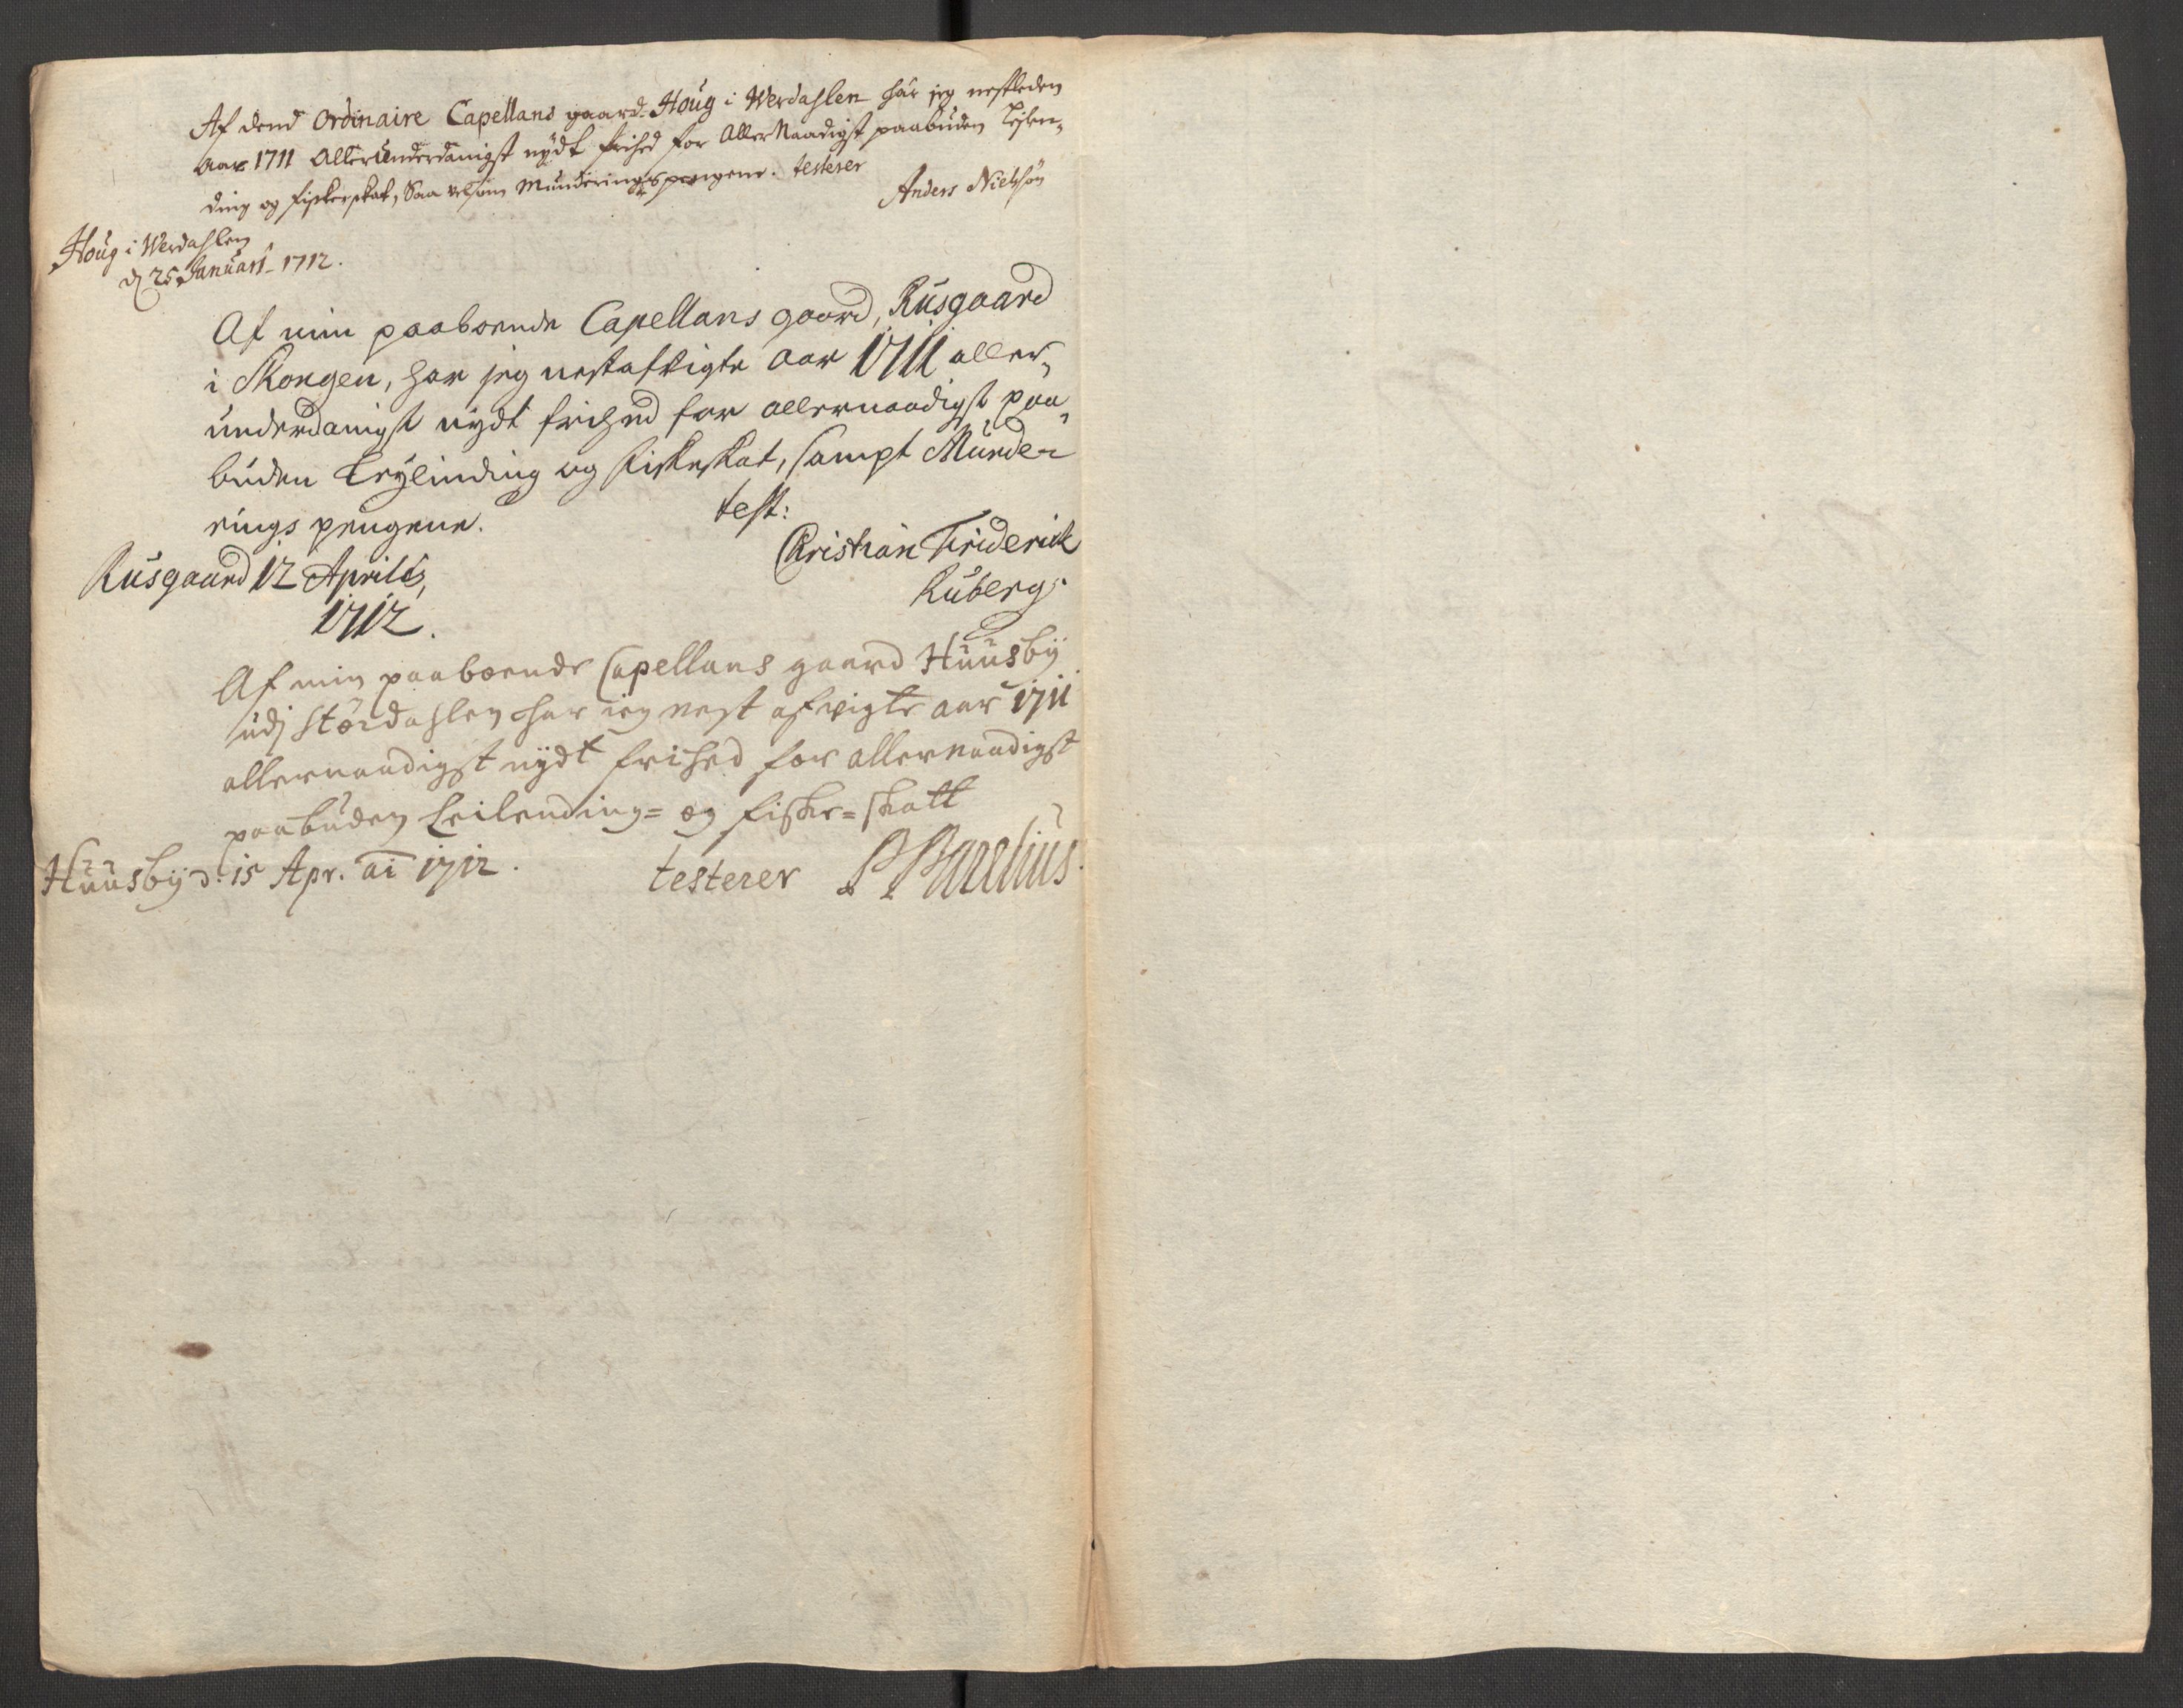 Af dend Ordinaire Capellans gaard Houg i Werdahlen har jeg nestleden
aar 1711 Allerunderdanigst nÿdt frihed for AllerNaadigst paabuden Leÿlen-
ding og fiskerskat, Saa velsom Munderings pengene. testerer
Anders Nielsøn
Houg i Werdahlen
d 25 Januarÿ 1712.
Af min paaboende Capellans gaard, Rusgaard
i Skongen, har jeg nestafvigte Aar 1711 aller-
underdanigst nydt frihed for allernaadigst paa-
buden Leÿlending og Fiskeskat, sampt Munde-
rings pengene.
test:
Christian Friderick
Ruberg.
Rusgaard 12 Aprilis,
1712.
Af min paaboende Capellans gaard Huusbÿ
udj Størdahlen har ieg nest afvigte aar 1711
allernaadigst nÿdt frihed for allernaadigst
paabuden Leilending= og fiske=skatt
Huusbÿ d. 15 Apr. ai 1712.
testerer P Parelius.